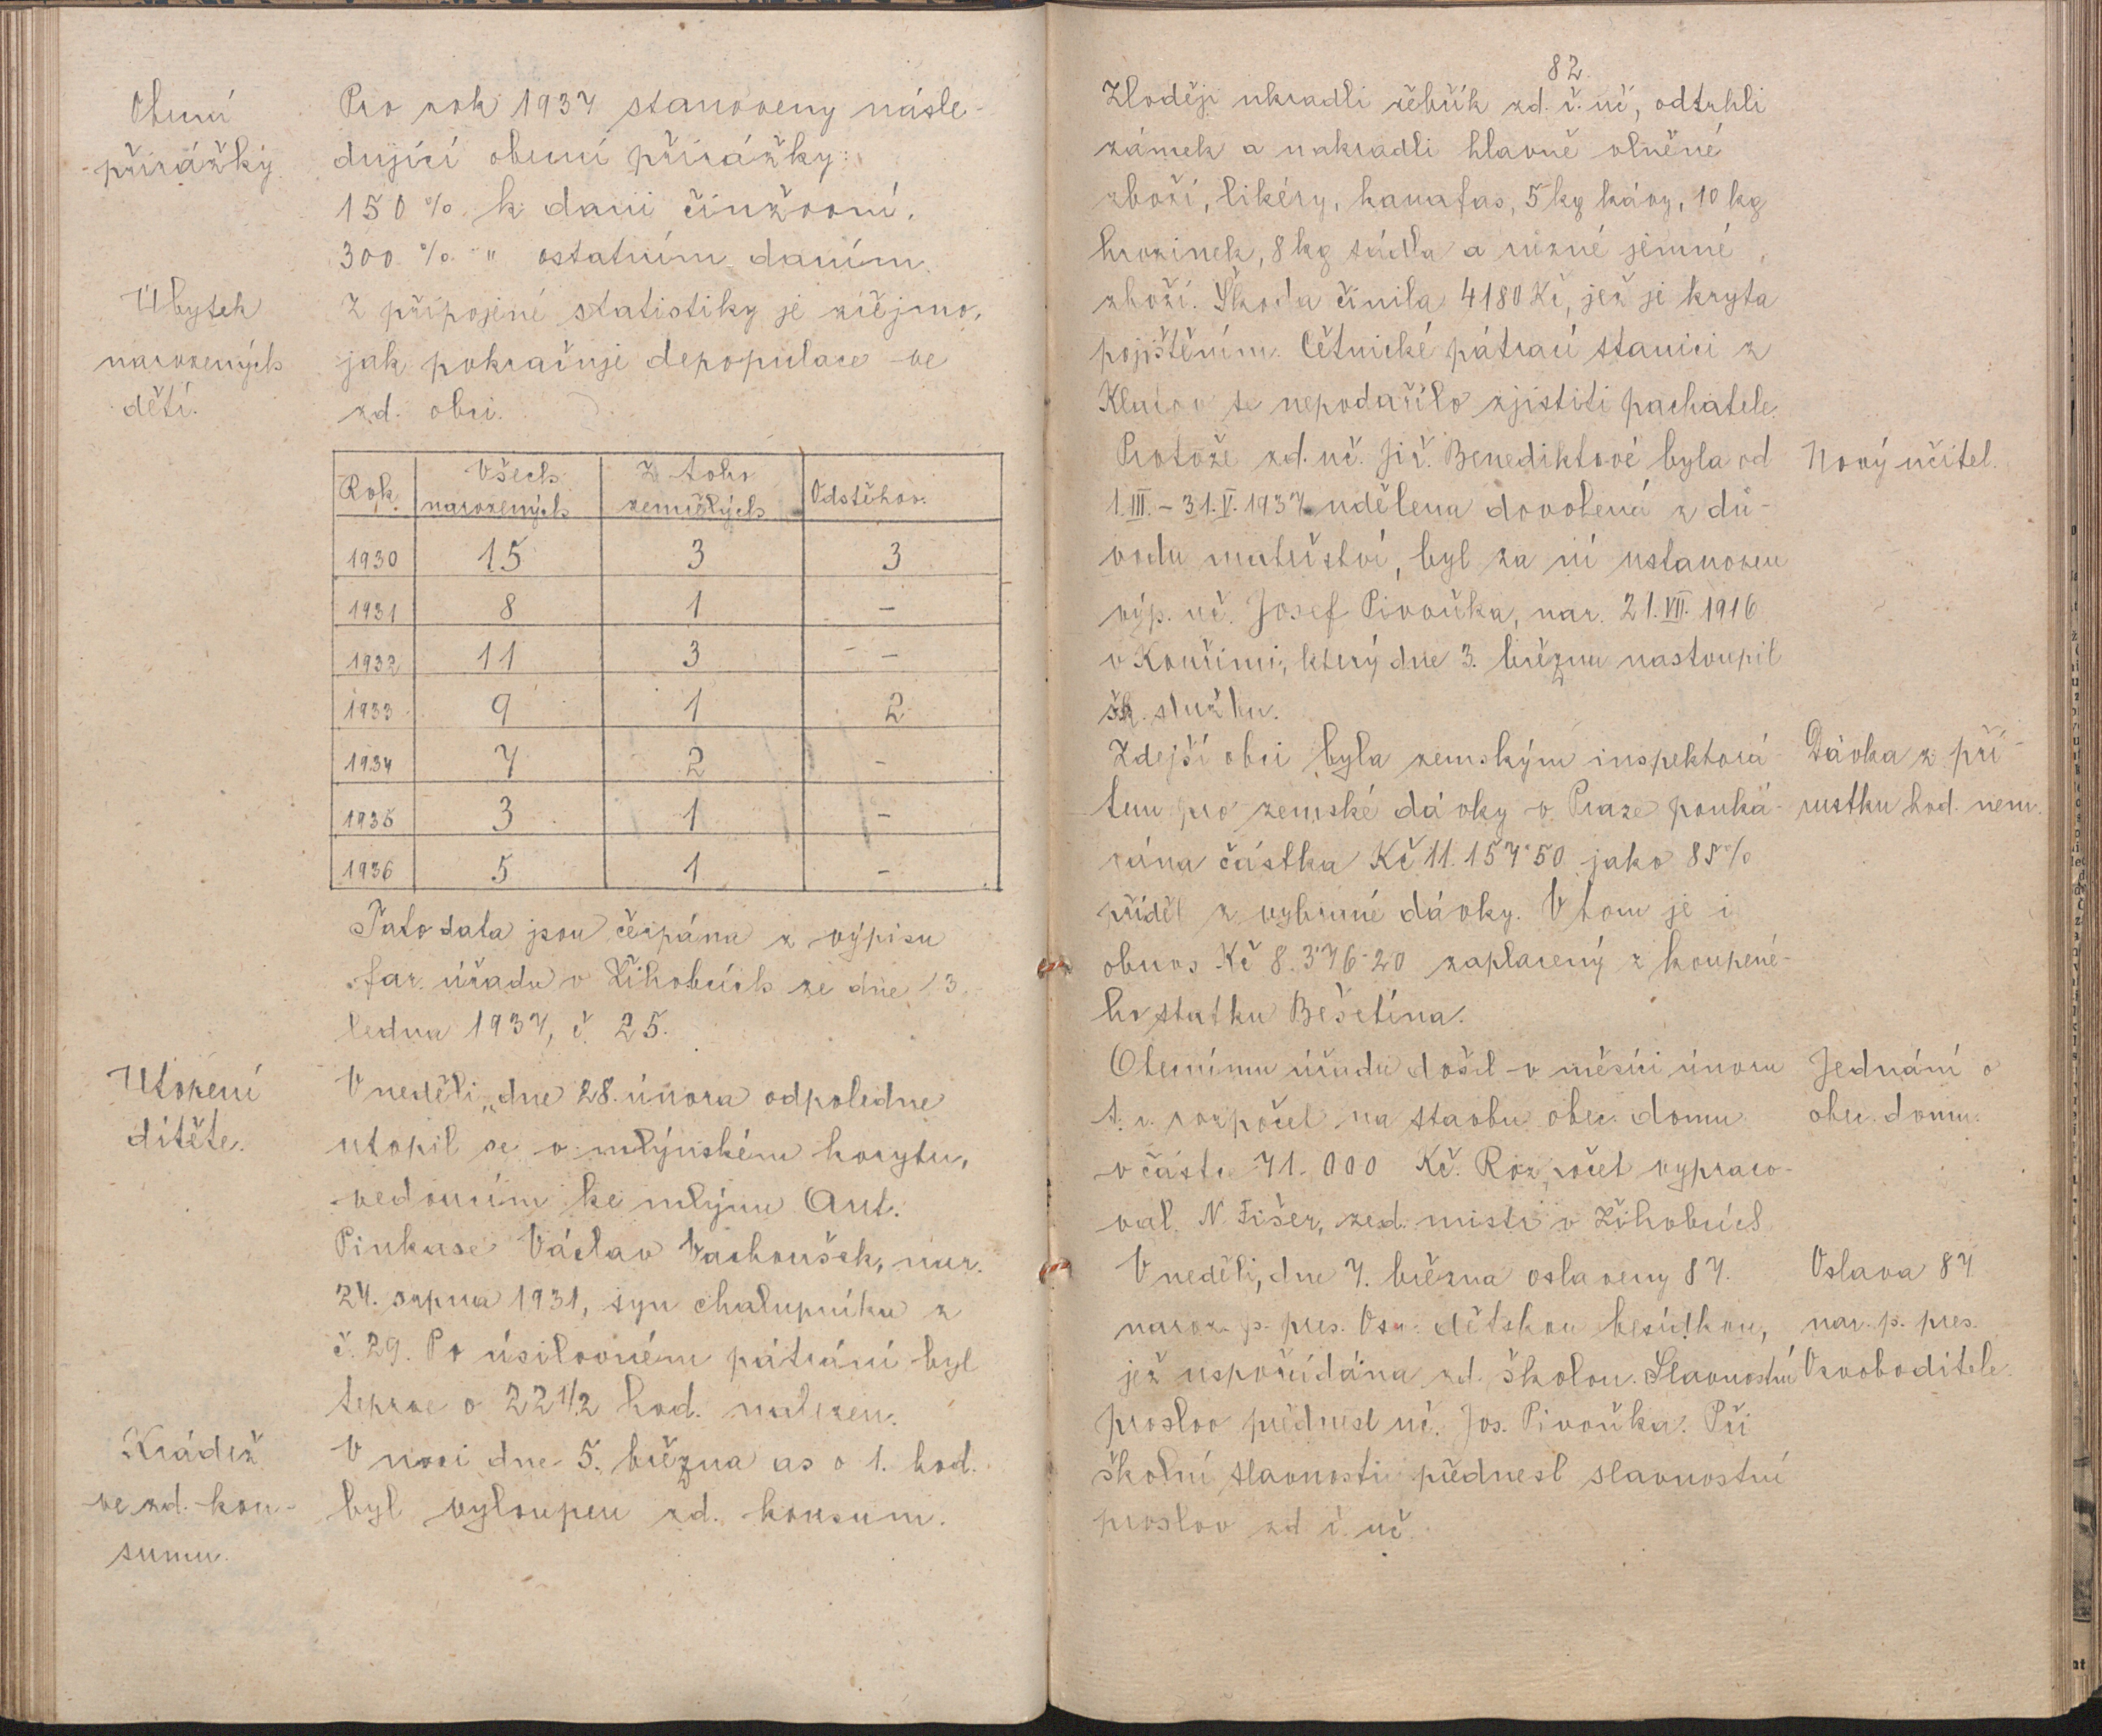 Obecní
přirážky.
Pro rok 1937 stanoveny násle-
dující obecní přirážky:
150 % k dani činžovní,
300 % " ostatním daním.
Úbytek
narozených
dětí.
Z připojené statistiky je zřejmo,
jak pokračuje depopulace ve
zd. obci.
Rok | Všech narozených | Z toho zemřelých | Odstěhov.
1930 | 15 | 3 | 3
1931 | 8 | 1 | –
1932 | 11 | 3 | –
1933 | 9 | 1 | 2
1934 | 7 | 2 | –
1935 | 3 | 1 | –
1936 | 5 | 1 | –
Tato data jsou čerpána z výpisu
far. úřadu v Žihobcích ze dne 13.
ledna 1937, č. 25.
Utopení
dítěte.
V neděli, dne 28. února odpoledne
utopil se v mlýnském korytu,
vedoucím ke mlýnu Ant.
Pinkase Václav Vachoušek, nar.
24. srpna 1931, syn chalupníka z
č. 29. Po úsilovném pátrání byl
teprve o 22 1/2 hod. nalezen.
Krádež
ve zd. kon-
sumu.
V noci dne 5. března as o 1. hod.
byl vyloupen zd. konsum.
82.
Zloději ukradli žebřík zd. ř. uč., odtrhli
zámek a nakradli hlavně vlněné
zboží, likéry, kanafas, 5 kg kávy, 10 kg
hrozinek, 8 kg sádla a různé jemné
zboží. Škoda činila 4180 Kč, jež je kryta
pojištěním. Četnické pátrací stanici z
Klatov se nepodařilo zjistiti pachatele.
Protože zd. uč. Jiř. Benediktové byla od
1.III. – 31.V. 1937 udělena dovolená z dů-
vodu mateřství, byl za ni ustanoven
výp. uč. Josef Pivoňka, nar. 21.VII. 1916
v Kouřimi, který dne 3. března nastoupil
šk. službu.
Nový učitel.
Zdejší obci byla zemským inspektorá-
tem pro zemské dávky v Praze pouká-
zána částka Kč 11.157·50 jako 85%
příděl z vybrané dávky. V tom je i
obnos Kč 8.376·20 zaplacený z koupené-
ho statku Bešetína.
Dávka z pří-
rustku hod. nem.
Obecnímu úřadu došel v měsíci únoru
t. r. rozpočet na stavbu obec. domu
v částce 71.000 Kč. Rozpočet vypraco-
val N. Fišer, zed. mistr v Žihobcích.
Jednání o
obec. domu.
V neděli, dne 7. března oslaveny 87.
naroz. p. pres. Osv. dětskou besídkou,
jež uspořádána zd. školou. Slavnostní
proslov přednesl uč. Jos. Pivoňka. Při
školní slavnosti přednesl slavnostní
proslov zd. ř. uč.
Oslava 87
nar. p. pres.
Osvoboditele.